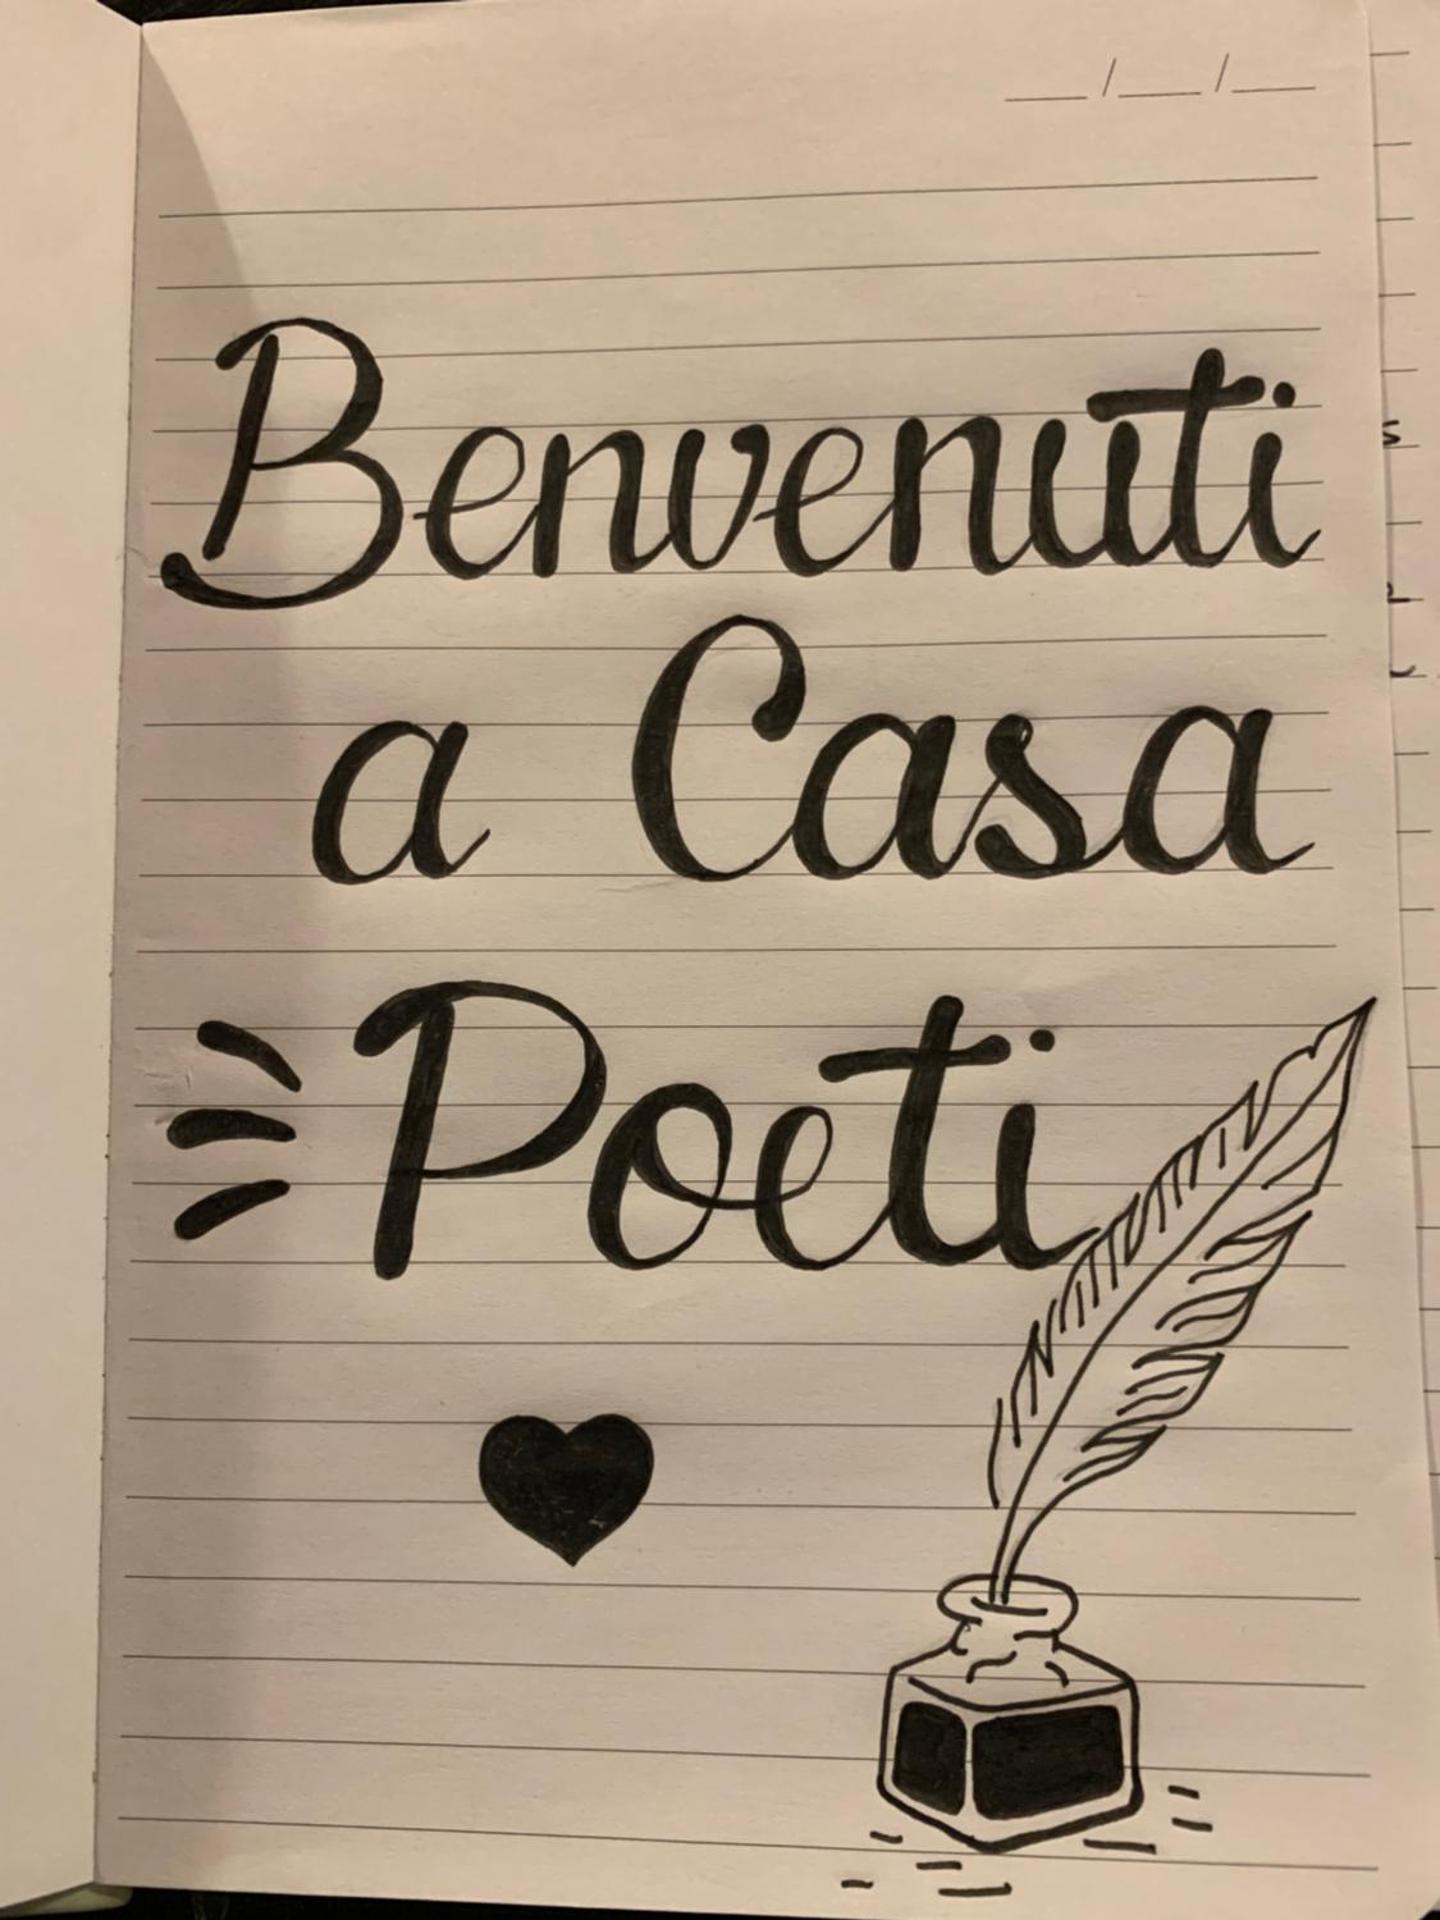 Benvenuti
a Casa
Poeti